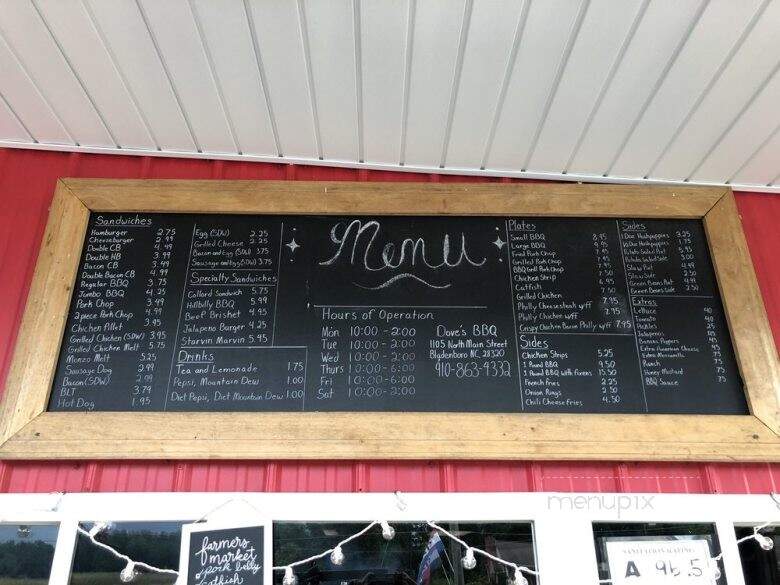 Menu
Sandwiches
Hamburger 2.75
Cheeseburger 2.99
Double CB 4.49
Double HB 3.99
Bacon CB 3.49
Double Bacon CB 4.99
Regular BBQ 3.75
Jumbo BBQ 4.25
Pork Chop 3.49
2 piece Pork Chop 4.99
Chicken Fillet 3.95
Grilled Chicken (SDW) 3.95
Grilled Chicken Melt 5.75
Monzo Melt 5.25
Sausage Dog 2.99
Bacon (SDW) 2.99
BLT 3.79
Hot Dog 1.95
Egg (SDW) 2.25
Grilled Cheese 2.25
Bacon and Egg (SDW) 3.75
Sausage and Egg (SDW) 3.75
Specialty Sandwiches
Collard Sandwich 5.75
Hillbilly BBQ 5.99
Beef Brisket 4.95
Jalapeno Burger 4.25
Starvin Marvin 5.95
Drinks
Tea and Lemonade 1.75
Pepsi, Mountain Dew 1.00
Diet Pepsi, Diet Mountain Dew 1.00
Hours of Operation
Mon 10:00 - 2:00
Tue 10:00 - 2:00
Wed 10:00 - 2:00
Thurs 10:00 - 6:00
Fri 10:00 - 6:00
Sat 10:00 - 2:00
Dove's BBQ
1105 North Main Street
Bladenboro NC, 28320
910-863-4332
Plates
Small BBQ 8.95
Large BBQ 9.95
Fried Pork Chop
Grilled Pork Chop
BBQ Grill Pork Chop
Chicken Strip 7.50
Catfish
Grilled Chicken 7.95
Philly Cheesesteak w/ff 7.95
Philly Chicken w/ff
Crispy Chicken Bacon Philly w/ff 7.95
Sides
Chicken Strips 5.25
1 Pound BBQ 9.50
1 Pound BBQ with fixens 15.50
French fries 2.25
Onion Rings 2.50
Chili Cheese Fries 4.50
Sides
Doz Hushpuppies
1/2 Doz Hushpuppies 1.75
Potato Salad Pint
Potato Salad Side 3.00
Slaw Pint 4.49
Slaw Side 2.50
Green Beans Pint 4.99
Green Beans Side 2.50
Extras
Lettuce 40
Tomato 40
Pickles
Jalapenos
Banana Peppers
Extra American Cheese 45
Extra Mozzarella 75
Ranch 75
Honey Mustard 75
BBQ Sauce 75
menupix
farmers
market
pork belly
catfish
SANITATION RATING
A 96.5